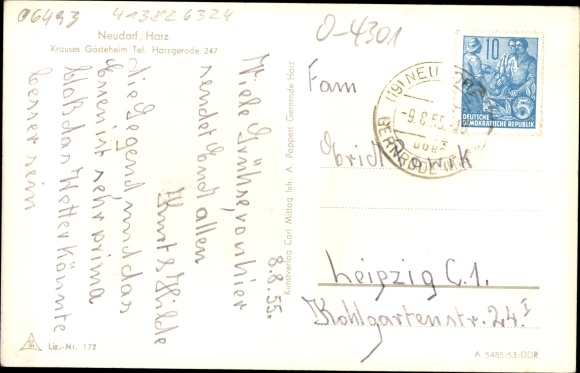 06493 413826324
Neudorf/Harz
Krauses Gästeheim Tel. Harzgerode 247
0-4301
Viele Grühse, von hier
sendet Eud allen
Kurt & Hilde
die Gegend, und das
Essen ist sehr prima
bloß das Wetter könnte
besser sein
8.8.55.
Kunstverlag Carl Mittag Inh. A. Pappert Gernrode Harz
10
DEUTSCHE
DEMOKRATISCHE REPUBLIK
5
(19) NEU
-9.8.55.-
GERNRODE
Fam
Erich
Leipzig C.1.
Kohlgartenstr. 24 I
Liz.-Nr. 172
A 5485-53-DDR